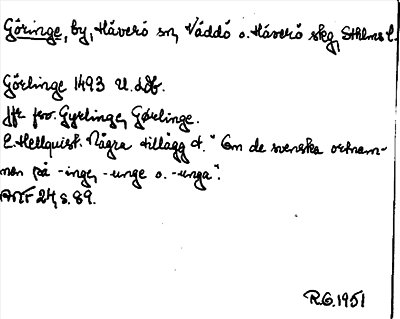 Göringe, by, Häverö sn, Väddö o. Häverö skg, Sthlms l.
Görlinge 1493 U. Löb.
Jfr fsv. Gyrlinge, Gørlinge.
E. Hellquist. Några tillägg t. "Om de svenska ortnam-
nen på -inge, -unge o. -unga".
ANF 24, s. 89.
R.G. 1951